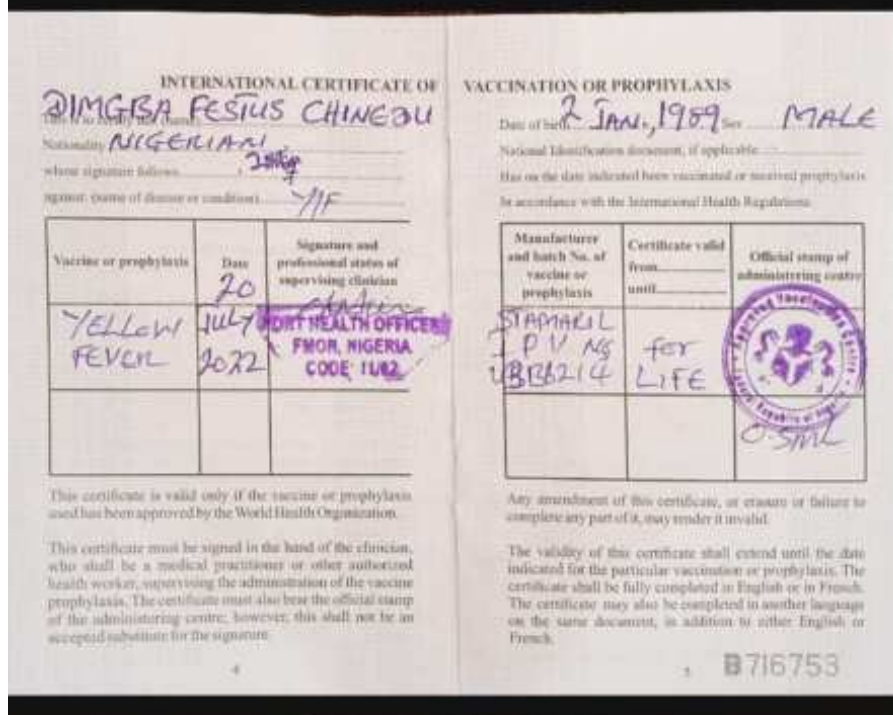 INTERNATIONAL CERTIFICATE OF
DIMGBA FESTUS CHINEDU
Nationality NIGERIAN
whose signature follows
against (name of disease or condition) Y/F
Vaccine or prophylaxis
Date
20
Signature and
professional status of
supervising clinician
YELLOW
FEVER
JULY
2022
PORT HEALTH OFFICER
FMOH, NIGERIA
This certificate is valid only if the vaccine or prophylaxis
used has been approved by the World Health Organization.
This certificate must be signed in the hand of the clinician,
who shall be a medical practitioner or other authorized
health worker, supervising the administration of the vaccine
prophylaxis. The certificate must also bear the official stamp
of the administering centre, however, this shall not be an
accepted substitute for the signature
4
VACCINATION OR PROPHYLAXIS
Date of birth 2 JAN., 1989 Sex MALE
National Identification document, if applicable
Has on the date indicated been vaccinated or received prophylaxis
In accordance with the International Health Regulations.
Manufacturer
and batch No. of
vaccine or
prophylaxis
Certificate valid
from
until
Official stamp of
administering centre
STAMARIL
for
LIFE
Any amendment of this certificate, or erasure or failure to
complete any part of it, may render it invalid.
The validity of this certificate shall extend until the date
indicated for the particular vaccination or prophylaxis. The
certificate shall be fully completed in English or in French.
The certificate may also be completed in another language
on the same document, in addition to either English or
French.
B716753